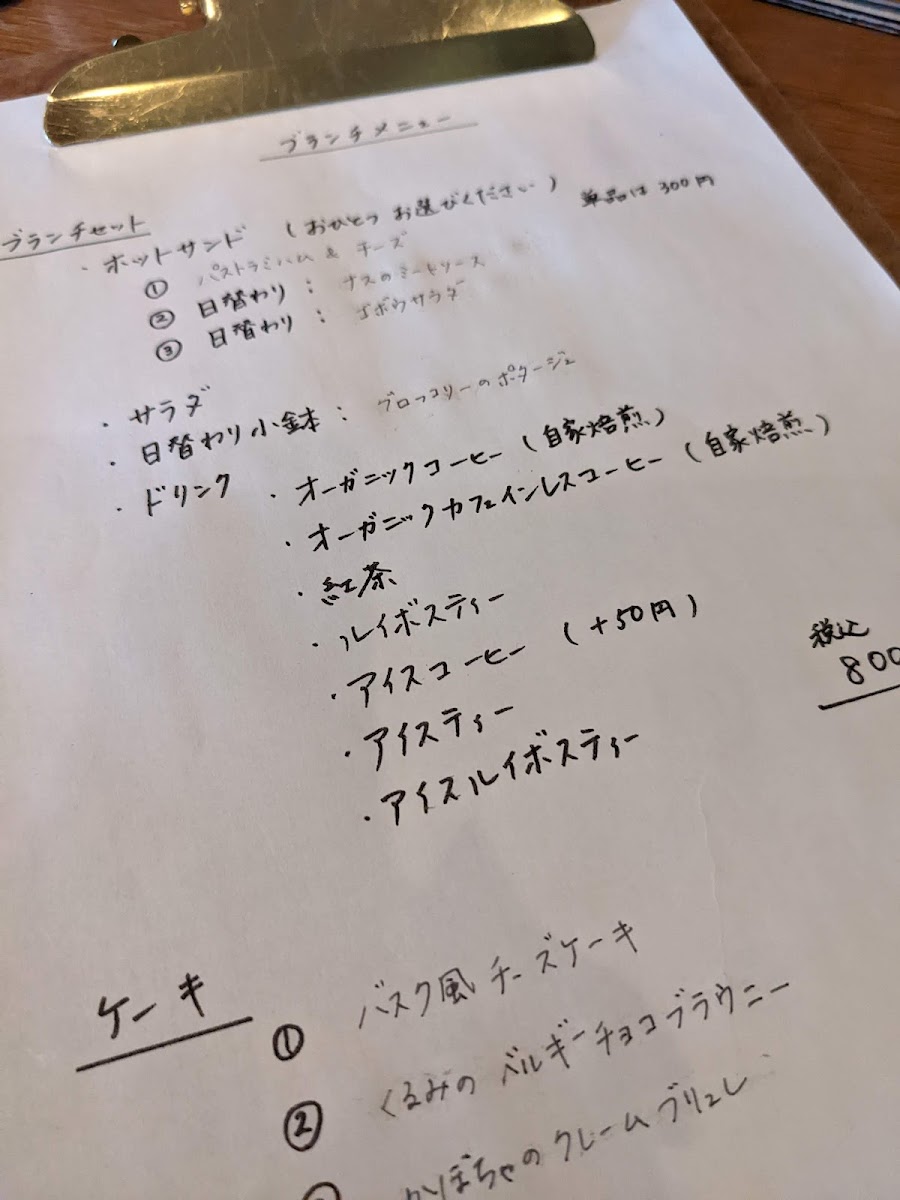 ブランチメニュー
ブランチセット
・ホットサンド (おひとつ お選びください) 単品は300円
① パストラミハム & チーズ
② 日替わり : ナスのミートソース
③ 日替わり : ゴボウサラダ
・サラダ
・日替わり小鉢 : ブロッコリーのポタージュ
・ドリンク ・オーガニックコーヒー (自家焙煎)
・オーガニックカフェインレスコーヒー (自家焙煎)
・紅茶
・ルイボスティー
・アイスコーヒー (+50円)
・アイスティー
・アイスルイボスティー
税込
800
ケーキ
① バスク風チーズケーキ
② くるみのベルギーチョコブラウニー
かぼちゃのクレームブリュレ